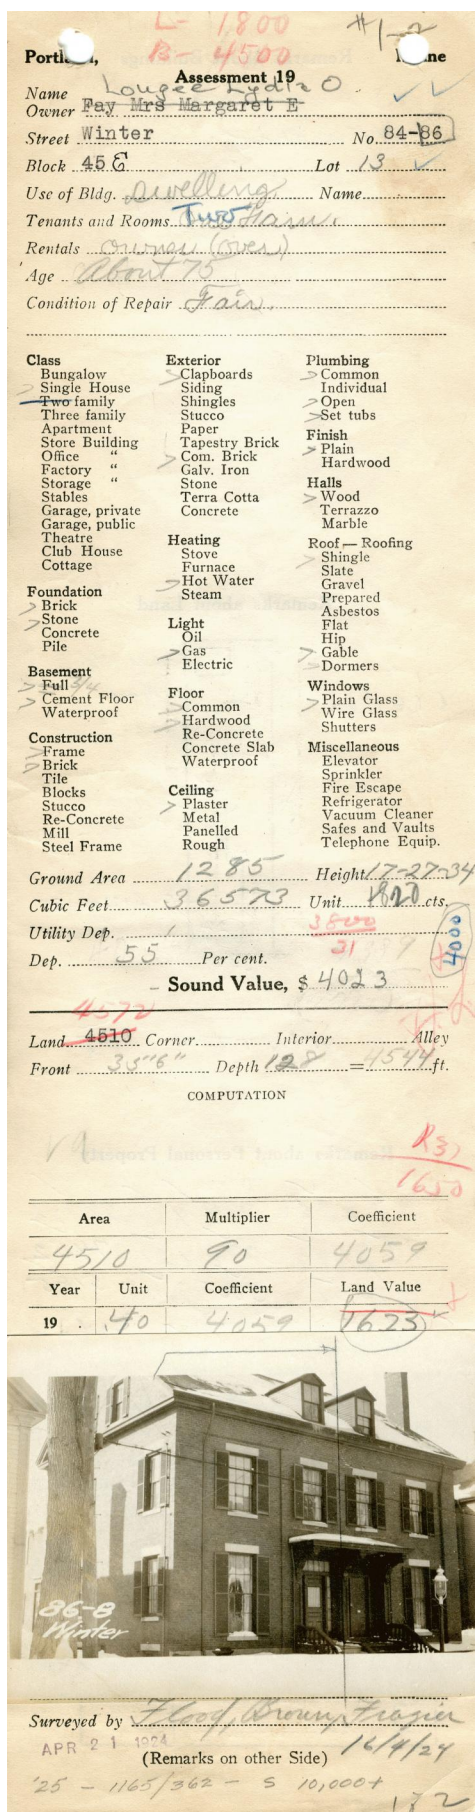 L- 1,800
B- 4500
#1-2
Portland, Maine
Assessment 19
Name Lougee Lydia O
Owner Fay Mrs Margaret E
Street Winter No. 84-86
Block 45 E Lot 13
Use of Bldg. Dwelling Name
Tenants and Rooms Two Fam.
Rentals owner (over)
Age About 75
Condition of Repair Fair.
Class
Bungalow
Single House
Two family
Three family
Apartment
Store Building
Office "
Factory "
Storage "
Stables
Garage, private
Garage, public
Theatre
Club House
Cottage
Foundation
Brick
Stone
Concrete
Pile
Basement
Full 3/4
Cement Floor
Waterproof
Construction
Frame
Brick
Tile
Blocks
Stucco
Re-Concrete
Mill
Steel Frame
Exterior
Clapboards
Siding
Shingles
Stucco
Paper
Tapestry Brick
Com. Brick
Galv. Iron
Stone
Terra Cotta
Concrete
Heating
Stove
Furnace
Hot Water
Steam
Light
Oil
Gas
Electric
Floor
Common
Hardwood
Re-Concrete
Concrete Slab
Waterproof
Ceiling
Plaster
Metal
Panelled
Rough
Plumbing
Common
Individual
Open
Set tubs
Finish
Plain
Hardwood
Halls
Wood
Terrazzo
Marble
Roof — Roofing
Shingle
Slate
Gravel
Prepared
Asbestos
Flat
Hip
Gable
Dormers
Windows
Plain Glass
Wire Glass
Shutters
Miscellaneous
Elevator
Sprinkler
Fire Escape
Refrigerator
Vacuum Cleaner
Safes and Vaults
Telephone Equip.
Ground Area 1285 Height 17-27-34
Cubic Feet 36573 Unit cts.
Utility Dep.
3800
31
4000
Dep. 55 Per cent.
Sound Value, $ 4023
4572
Land 4510 Corner Interior Alley
Front 35"6" Depth 128 = 4544 ft.
COMPUTATION
R31
1650
Area Multiplier Coefficient
4510 90 4059
Year Unit Coefficient Land Value
19 .40 4059 1623
86-8
Winter
Surveyed by Flood, Brown, Frazier
APR 21 1924
16/4/24
(Remarks on other Side)
'25 - 1165/362 - S 10,000+